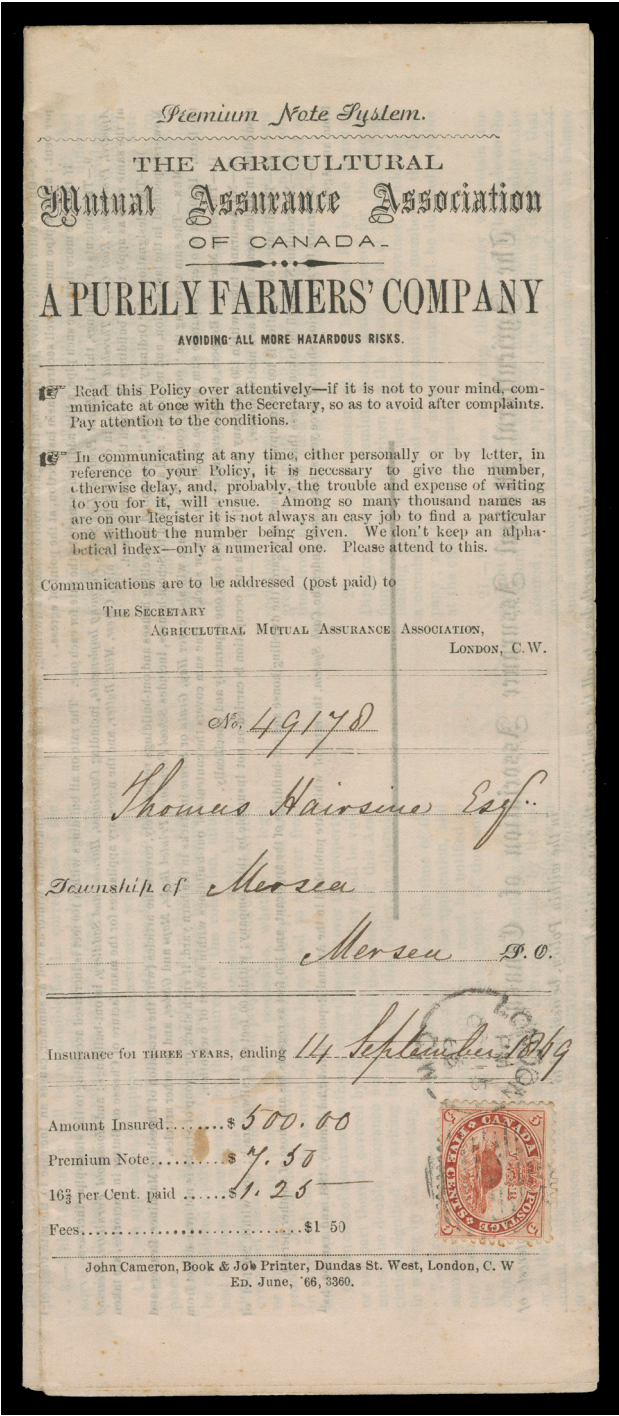 Premium Note System.
THE AGRICULTURAL
Mutual Assurance Association
OF CANADA.
A PURELY FARMERS' COMPANY
AVOIDING ALL MORE HAZARDOUS RISKS.
Read this Policy over attentively—if it is not to your mind, com-
municate at once with the Secretary, so as to avoid after complaints.
Pay attention to the conditions.
In communicating at any time, either personally or by letter, in
reference to your Policy, it is necessary to give the number,
otherwise delay, and, probably, the trouble and expense of writing
to you for it, will ensue. Among so many thousand names as
are on our Register it is not always an easy job to find a particular
one without the number being given. We don't keep an alpha-
betical index—only a numerical one. Please attend to this.
Communications are to be addressed (post paid) to
THE SECRETARY
AGRICULUTRAL MUTUAL ASSURANCE ASSOCIATION,
LONDON, C.W.
No. 49178
Thomas Hairsine Esq.
Township of Mersea
Mersea P.O.
LONDON
Insurance for THREE YEARS, ending 14 September 1869
Amount Insured........$ 500.00
Premium Note..........$ 7.50
16⅔ per Cent. paid ......$ 1.25
Fees............................$1 50
CANADA POSTAGE
FIVE CENTS
5 5 5 5
John Cameron, Book & Job Printer, Dundas St. West, London, C. W
ED. June, '66, 3360.